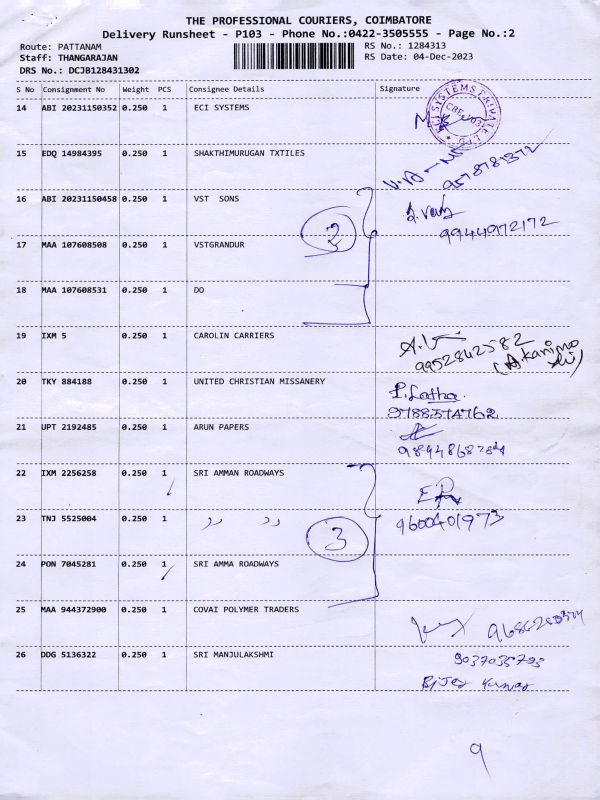 THE PROFESSIONAL COURIERS, COIMBATORE
Delivery Runsheet - P103 - Phone No.:0422-3505555 - Page No.:2
Route: PATTANAM RS No.: 1284313
Staff: THANGARAJAN RS Date: 04-Dec-2023
DRS No.: DCJB128431302
S No Consignment No Weight PCS Consignee Details Signature
14 ABI 20231150352 0.250 1 ECI SYSTEMS
15 EDQ 14984395 0.250 1 SHAKTHIMURUGAN TXTILES
9578781372
16 ABI 20231150458 0.250 1 VST SONS
9944972172
2
17 MAA 107608508 0.250 1 VSTGRANDUR
18 MAA 107608531 0.250 1 DO
19 IXM 5 0.250 1 CAROLIN CARRIERS
9952842582
20 TKY 884188 0.250 1 UNITED CHRISTIAN MISSANERY
P. Latha
21 UPT 2192485 0.250 1 ARUN PAPERS
22 IXM 2256258 0.250 1 SRI AMMAN ROADWAYS
23 TNJ 5525004 0.250 1 ,, ,,
9600401973
3
24 PON 7045281 0.250 1 SRI AMMA ROADWAYS
25 MAA 944372900 0.250 1 COVAI POLYMER TRADERS
26 DDG 5136322 0.250 1 SRI MANJULAKSHMI
9